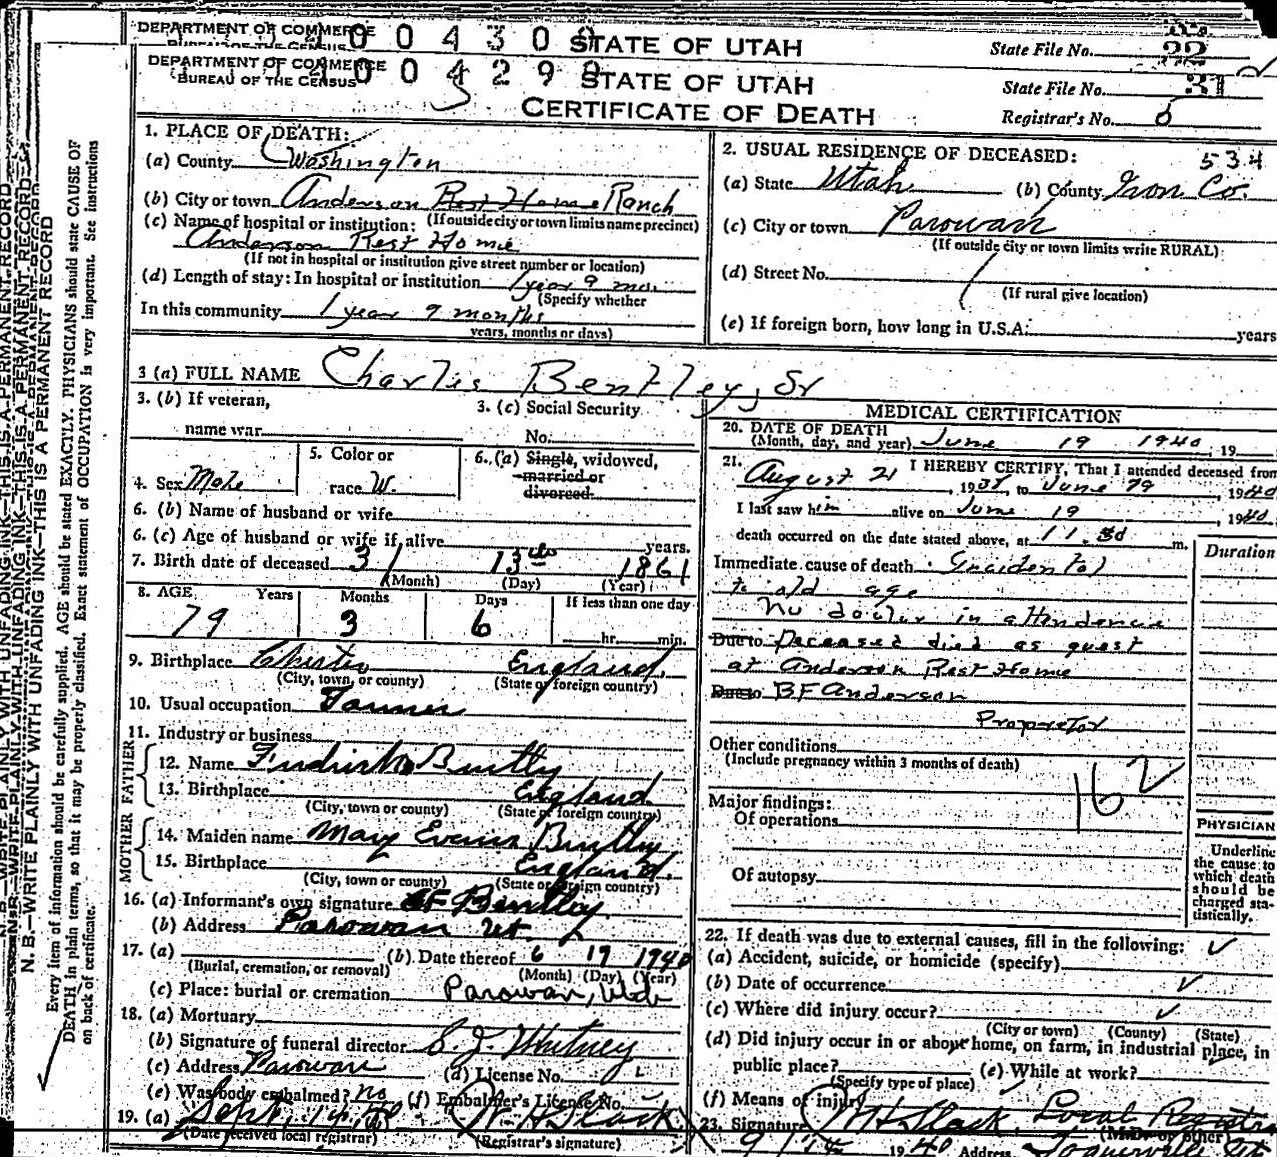 DEPARTMENT OF COMMERCE
BUREAU OF THE CENSUS
STATE OF UTAH
State File No. 22
DEPARTMENT OF COMMERCE
BUREAU OF THE CENSUS
004299
STATE OF UTAH
State File No. 31
CERTIFICATE OF DEATH
Registrar's No. 5
N. B.—WRITE PLAINLY WITH UNFADING INK—THIS IS A PERMANENT RECORD
Every item of information should be carefully supplied. AGE should be stated EXACTLY. PHYSICIANS should state CAUSE OF
DEATH in plain terms, so that it may be properly classified. Exact statement of OCCUPATION is very important. See instructions
on back of certificate.
1. PLACE OF DEATH:
(a) County Washington
(b) City or town Anderson Rest Home Ranch
(If outside city or town limits name precinct)
(c) Name of hospital or institution:
Anderson Rest Home
(If not in hospital or institution give street number or location)
(d) Length of stay: In hospital or institution 1 year 9 mo.
(Specify whether
In this community 1 year 9 months
years, months or days)
2. USUAL RESIDENCE OF DECEASED: 534
(a) State Utah (b) County Iron Co.
(c) City or town Parowan
(If outside city or town limits write RURAL)
(d) Street No.
(If rural give location)
(e) If foreign born, how long in U.S.A: years
3 (a) FULL NAME Charles Bentley, Sr
3. (b) If veteran,
name war
3. (c) Social Security
No.
4. Sex Male
5. Color or
race W.
6. (a) Single, widowed,
married or
divorced.
6. (b) Name of husband or wife
6. (c) Age of husband or wife if alive years.
7. Birth date of deceased 3 13th 1861
(Month) (Day) (Year)
8. AGE Years Months Days If less than one day
79 3 6 hr. min.
9. Birthplace Chester England.
(City, town, or county) (State or foreign country)
10. Usual occupation Farmer
11. Industry or business
FATHER
12. Name Bentley
13. Birthplace England
(City, town or county) (State or foreign country)
MOTHER
14. Maiden name Mary Evans Bentley
15. Birthplace England.
(City, town or county) (State or foreign country)
16. (a) Informant's own signature CF Bentley
(b) Address Parowan Ut.
17. (a) (b) Date thereof 6 19 1940
(Burial, cremation, or removal) (Month) (Day) (Year)
(c) Place: burial or cremation Parowan, Utah
18. (a) Mortuary
(b) Signature of funeral director S. J. Whitney
(c) Address Parowan (d) License No.
(e) Was body embalmed? no (f) Embalmer's License No.
19. (a) Sept. 14, 40 W. H Slack
(Date received local registrar) (Registrar's signature)
MEDICAL CERTIFICATION
20. DATE OF DEATH
(Month, day, and year) June 19 1940, 19
21. I HEREBY CERTIFY, That I attended deceased from
August 21, 1938, to June 19, 1940
I last saw him alive on June 19, 1940
death occurred on the date stated above, at 11.30 m.
Duration
Immediate cause of death Incidental
to old age
No doctor in attendance
Due to Deceased died as guest
at Anderson Rest Home
Due to BF Anderson
Proprietor
Other conditions
(Include pregnancy within 3 months of death)
162
Major findings:
Of operations
Of autopsy
PHYSICIAN
Underline
the cause to
which death
should be
charged sta-
tistically.
22. If death was due to external causes, fill in the following:
(a) Accident, suicide, or homicide (specify)
(b) Date of occurrence
(c) Where did injury occur?
(City or town) (County) (State)
(d) Did injury occur in or about home, on farm, in industrial place, in
public place? (e) While at work?
(Specify type of place)
(f) Means of injury
23. Signature W H Slack Local Registrar
(M.D. or other)
9/14 1940 Address Toquerville Ut